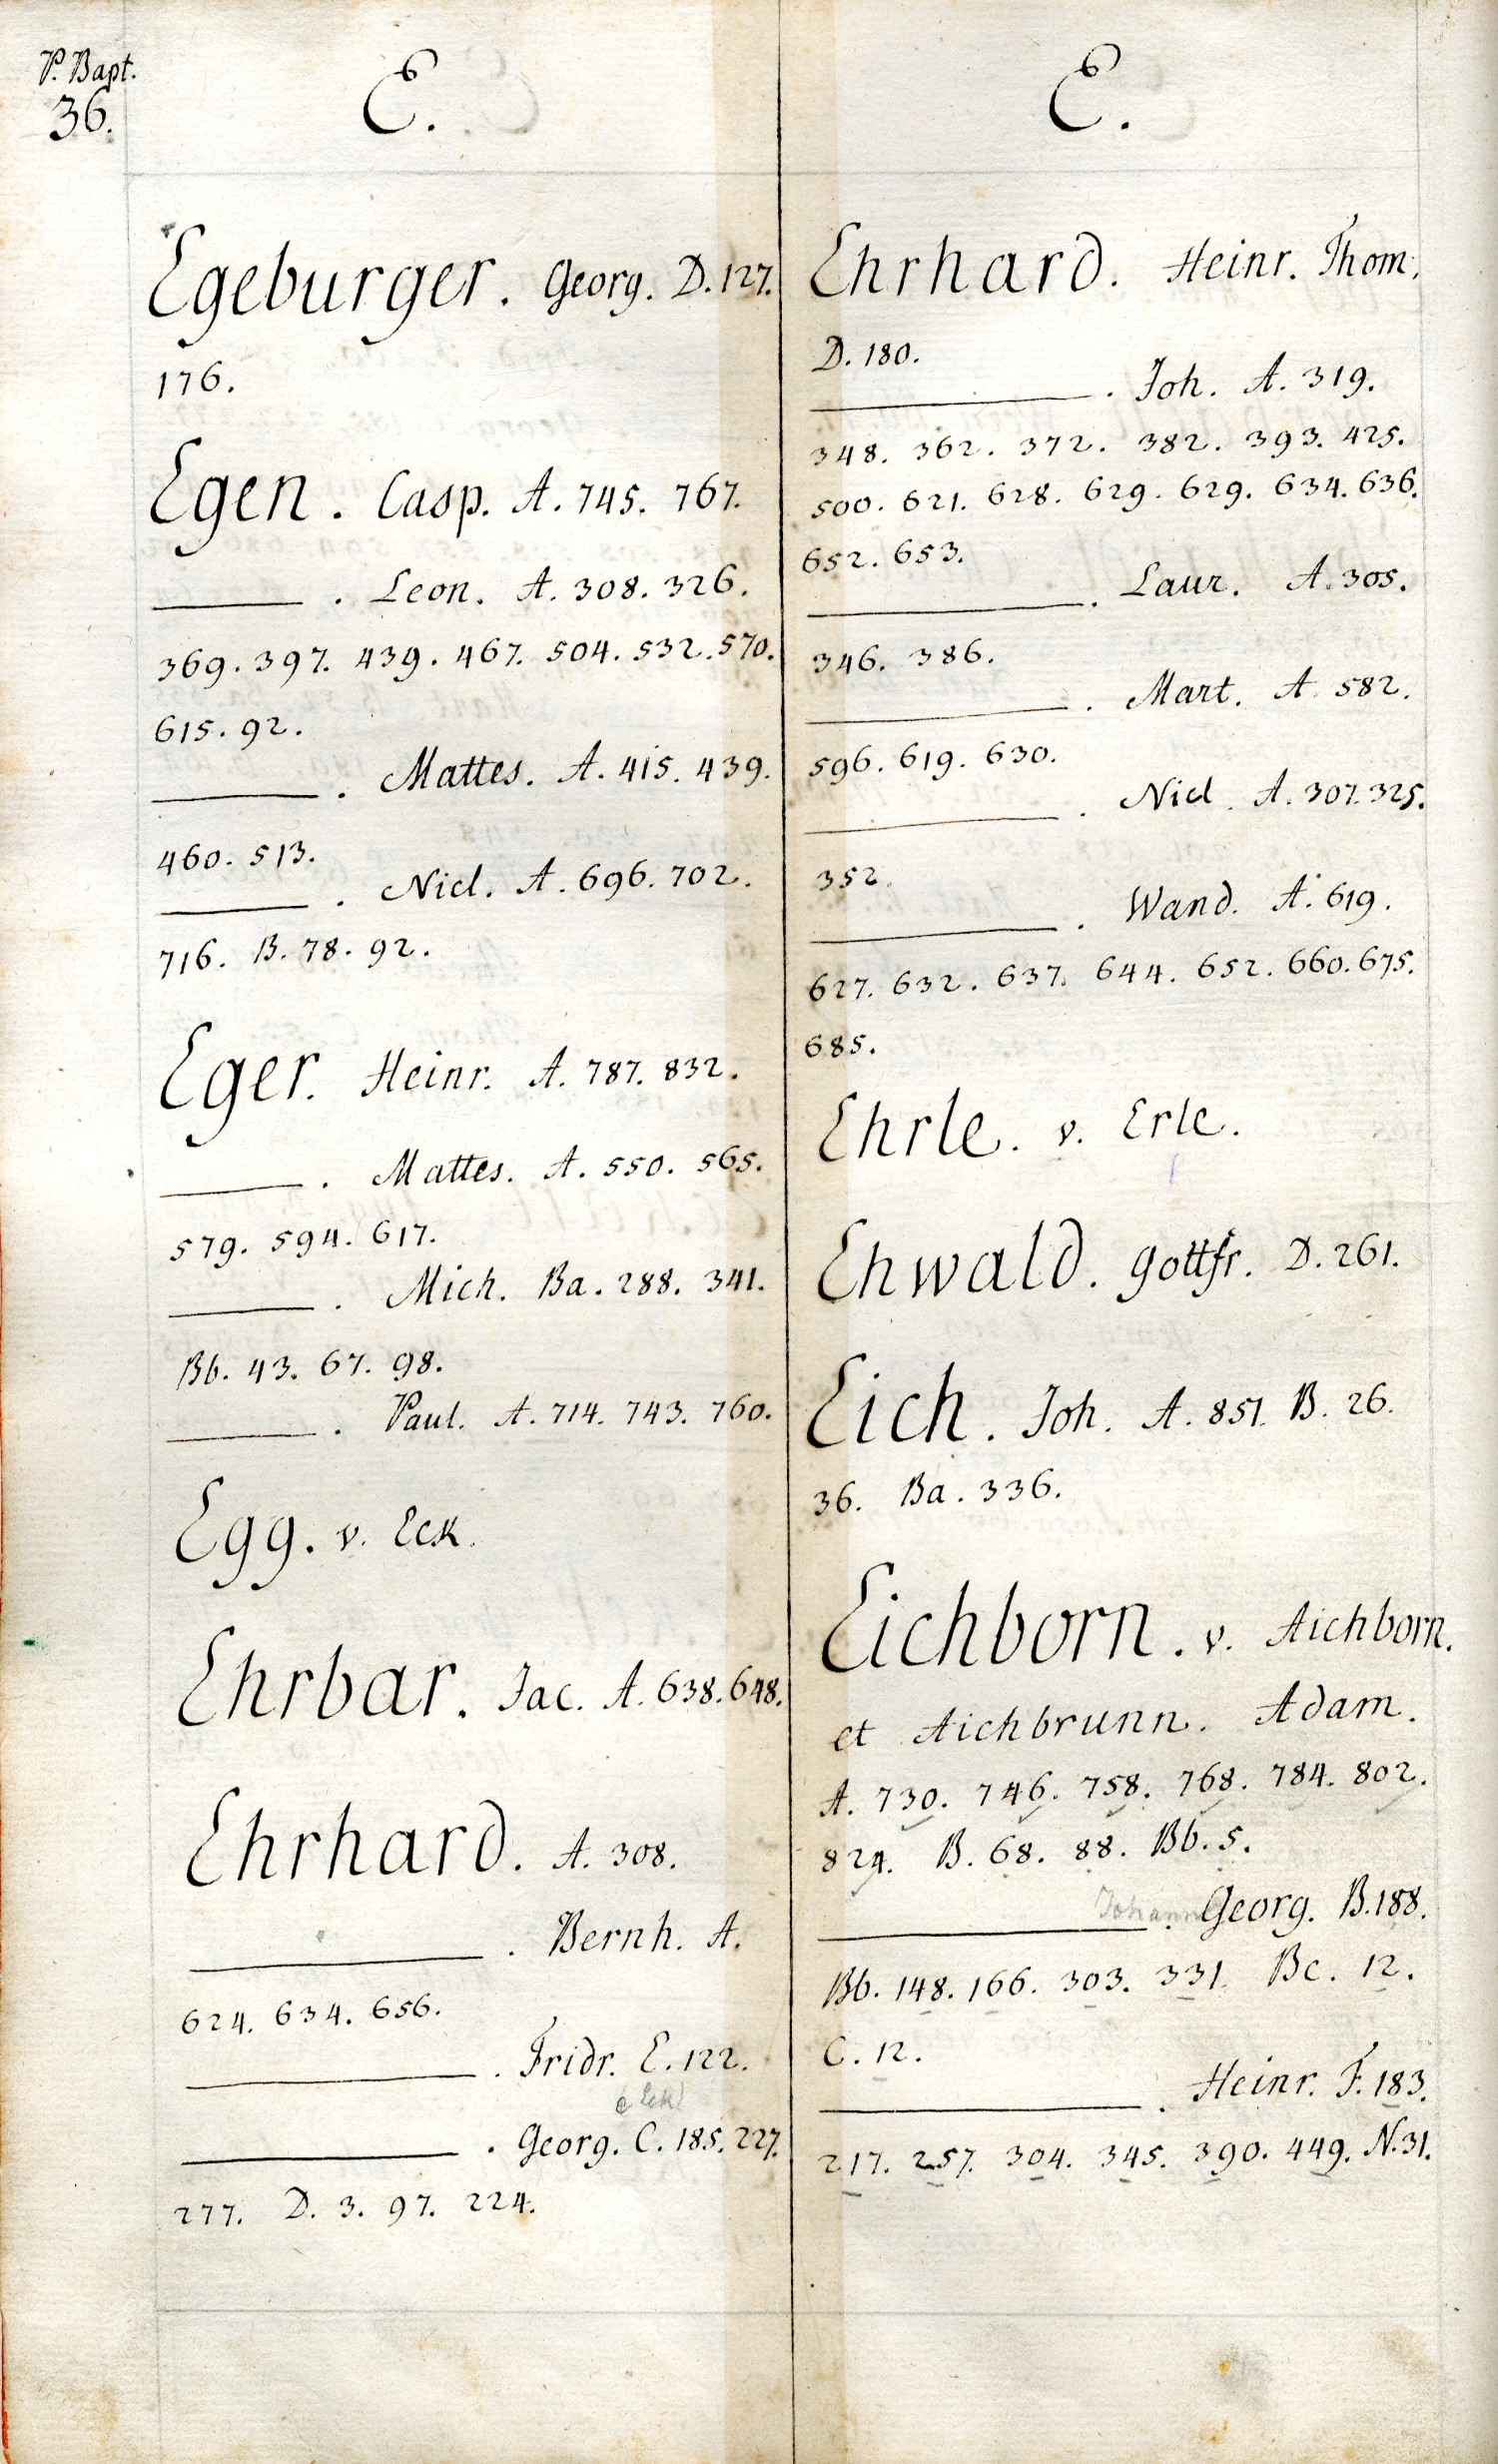 P. Bapt.
36.
E.
Egeburger. Georg. D. 127.
176.
Egen. Casp. A. 745. 767.
———. Leon. A. 308. 326.
369. 397. 439. 467. 504. 532. 570.
615. 92.
———. Mattes. A. 415. 439.
460. 513.
———. Nicl. A. 696. 702.
716. B. 78. 92.
Eger. Heinr. A. 787. 832.
———. Mattes. A. 550. 565.
579. 594. 617.
———. Mich. Ba. 288. 341.
Bb. 43. 67. 98.
———. Paul. A. 714. 743. 760.
Egg. v. Eck.
Ehrbar. Jac. A. 638. 648.
Ehrhard. A. 308.
———. Bernh. A.
624. 634. 656.
———. Fridr. E. 122.
———. Georg. C. 185. 227.
277. D. 3. 97. 224.
E.
Ehrhard. Heinr. Thom.
D. 180.
———. Joh. A. 319.
348. 362. 372. 382. 393. 425.
500. 621. 628. 629. 629. 634. 636.
652. 653.
———. Laur. A. 305.
346. 386.
———. Mart. A. 582.
596. 619. 630.
———. Nicl. A. 307. 325.
352.
———. Wand. A. 619.
627. 632. 637. 644. 652. 660. 675.
685.
Ehrle. v. Erle.
Ehwald. Gottfr. D. 261.
Eich. Joh. A. 851. B. 26.
36. Ba. 336.
Eichborn. v. Aichborn.
et Aichbrunn. Adam.
A. 730. 746. 758. 768. 784. 802.
824. B. 68. 88. Bb. 5.
———. Johann Georg. B. 188.
Bb. 148. 166. 303. 331. Bc. 12.
C. 12.
———. Heinr. F. 183.
217. 257. 304. 345. 390. 449. N. 31.